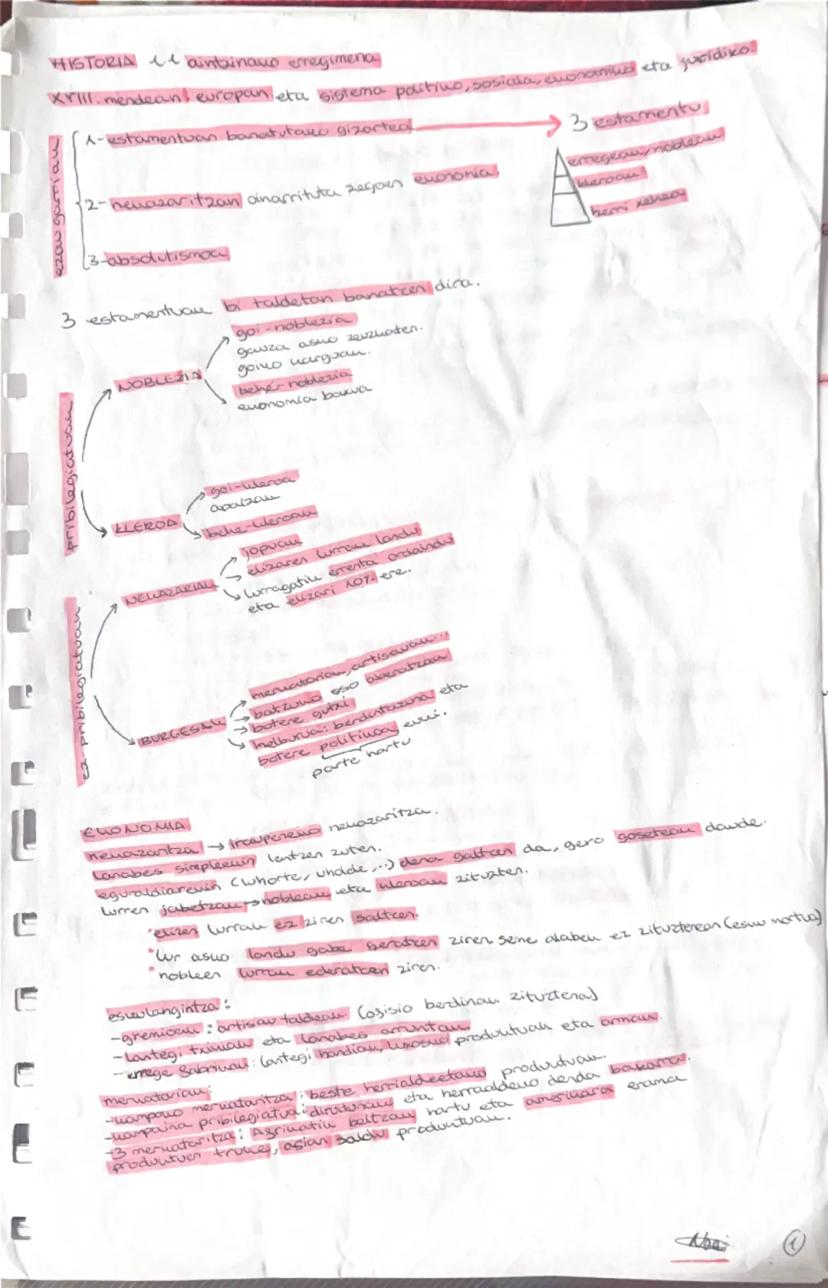 HISTORIA 1.1 aintzinako erregimena
XVIII. mendean, europan eta sistema politiko, soziala, ekonomiko eta juridiko.
ezaugarriak
1- estamentuan banatutako gizartea → 3 estamentu
erregeak/nobleak
kleroak
herri xehea
2- nekazaritzan oinarrituta zegoen ekonomia.
3- absolutismoa
3 estamentuak bi taldetan banatzen dira.
pribilegiatuak
NOBLEZIA
goi-noblezia
gauza asko zeuzkaten.
goiko karguak.
behe-noblezia
ekonomia baxua
KLEROA
goi-kleroa
apaizak
behe-kleroak
ez-pribilegiatuak
NEKAZARIAK
jopuak
elizaren lurrak landu
lurragatik errenta ordaindu
eta elizari 10% ere.
BURGESAK
merkatariak, artisauak...
batzuk oso aberatsak
botere gutxi
helburua: berdintasuna eta
botere politikoa euki.
parte hartu
EKONOMIA
nekazaritza → iraupeneko nekazaritza.
Lanabes simpleekin lantzen zuten.
eguraldiarekin (lehorte, uholde,..) dena galtzen da, gero goseteak daude.
lurren jabetzak → nobleak eta kleroak zituzten.
elizen lurrak ez ziren saltzen.
lur asko landu gabe geratzen ziren seme alabek ez zituztenean (esku mortua)
nobleen lurrak ederatzen ziren.
eskulangintza:
- gremioak: artisau taldeak (ofisio berdinak zituztena)
- lantegi txikiak eta lanabes arruntak
- errege fabrikak: lantegi handiak, luxosuk produktuak eta armak.
merkatariak:
- kanpoko merkataritza: beste herrialdeetako produktuak.
- konpainia pribilegiatuak: dirudunak eta herraldeko denda bakarra.
- 3 merkataritza: Afrikatik beltzak hartu eta amerikara eraman
produktuen truke, asian saldu produktuak.
1